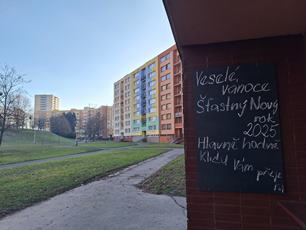 Veselé
vanoce
Šťastný Nový
rok
2025
Hlavně hodně
Klidu Vám přeje